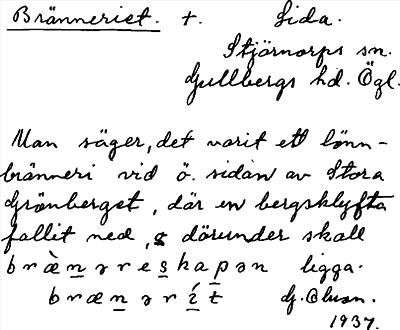 Bränneriet. +. Lida.
Stjärnorps sn.
Gullbergs hd. Ögl.
Man säger, det varit ett lönn-
bränneri vid ö. sidan av Stora
Grönberget, där en bergsklyfta
fallit ned, o därunder skall
bræ̀n̲əres̲kap̲ən ligga.
bræn̲ərí̲t̲ G. Ohson.
1937.